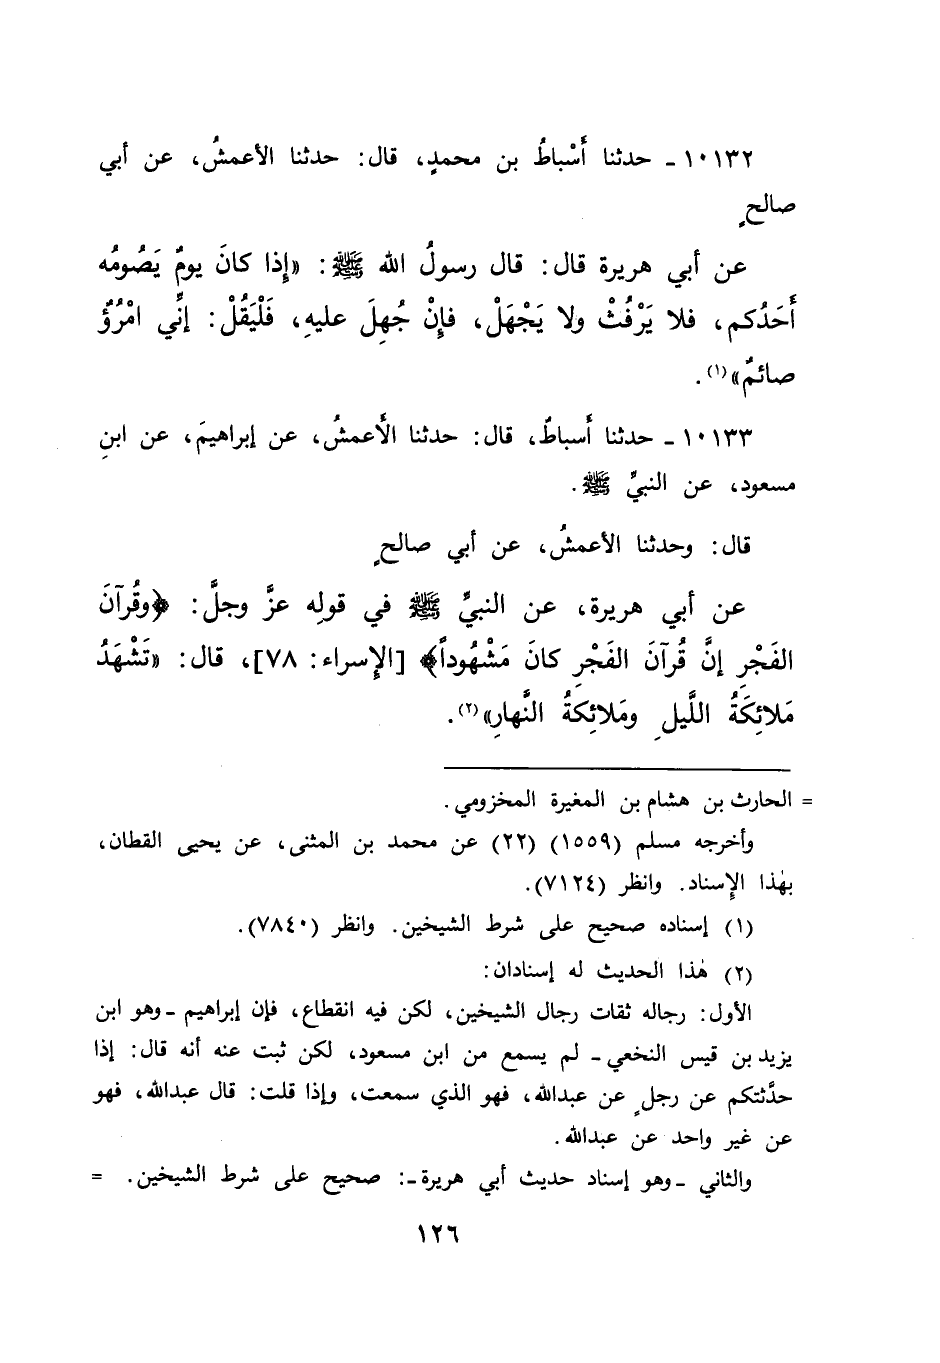 ١٠١٣٢ ـ حدثنا أَسْباطُ بن محمدٍ، قال: حدثنا الأعمشُ، عن أبي
صالحٍ
عن أبي هريرة قال: قال رسولُ الله ﷺ: «إِذا كانَ يومٌ يَصُومُه
أَحَدُكم، فلا يَرْفُثْ ولا يَجْهَلْ، فإِنْ جُهِلَ عليهِ، فَلْيَقُلْ: إِنِّي امْرُؤٌ
صائمٌ»(١).
١٠١٣٣ ـ حدثنا أَسباطٌ، قال: حدثنا الأَعمشُ، عن إبراهيمَ، عن ابنِ
مسعود، عن النبيِّ ﷺ.
قال: وحدثنا الأعمشُ، عن أبي صالحٍ
عن أبي هريرة، عن النبيِّ ﷺ في قولِه عزَّ وجلَّ: ﴿وقُرآنَ
الفَجْرِ إنَّ قُرآنَ الفَجْرِ كانَ مَشْهُوداً﴾ [الإسراء: ٧٨]، قال: «تَشْهَدُ
مَلائِكَةُ اللَّيلِ ومَلائِكةُ النَّهارِ»(٢).
= الحارث بن هشام بن المغيرة المخزومي.
وأخرجه مسلم (١٥٥٩) (٢٢) عن محمد بن المثنى، عن يحيى القطان،
بهٰذا الإِسناد. وانظر (٧١٢٤).
(١) إسناده صحيح على شرط الشيخين. وانظر (٧٨٤٠).
(٢) هٰذا الحديث له إسنادان:
الأول: رجاله ثقات رجال الشيخين، لكن فيه انقطاع، فإن إبراهيم ـ وهو ابن
يزيد بن قيس النخعي ـ لم يسمع من ابن مسعود، لكن ثبت عنه أنه قال: إذا
حدَّثتكم عن رجلٍ عن عبدالله، فهو الذي سمعت، وإذا قلت: قال عبدالله، فهو
عن غير واحد عن عبدالله.
والثاني ـ وهو إسناد حديث أبي هريرة ـ: صحيح على شرط الشيخين. =
١٢٦